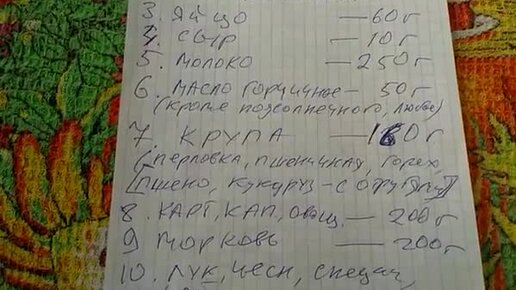 3. ЯЙЦО — 60 г
4. СЫР — 10 г
5. МОЛОКО — 250 г
6. МАСЛО ГОРЧИЧНОЕ — 50 г
(КРОМЕ ПОДСОЛНЕЧНОГО, ЛЮБОЕ)
7. КРУПА — 160 г
(ПЕРЛОВКА, ПШЕНИЧНАЯ, ГОРОХ,
ПШЕНО, КУКУРУЗ - С
8. КАРТ, КАП, ОВОЩ — 200 г
9 МОРКОВЬ — 200 г
10. ЛУК, ЧЕСН, СПЕЦИИ,